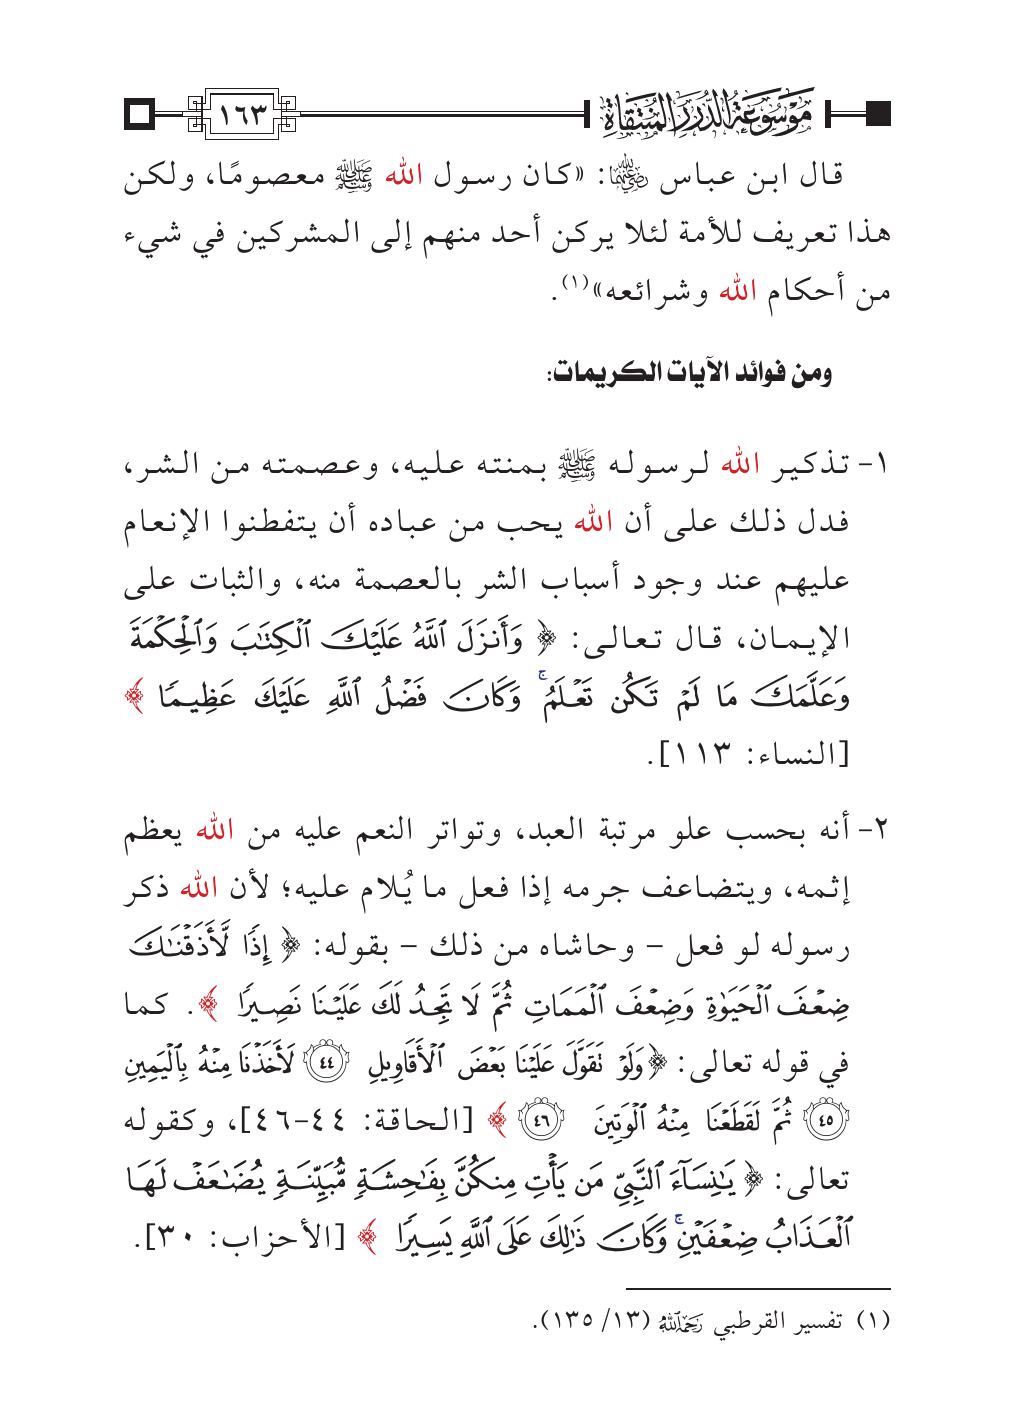 موسوعة الدرر المنتقاة
١٦٣
قال ابن عباس رضي الله عنهما: «كان رسول الله ﷺ معصومًا، ولكن
هذا تعريف للأمة لئلا يركن أحد منهم إلى المشركين في شيء
من أحكام الله وشرائعه»(١).
ومن فوائد الآيات الكريمات:
١- تذكير الله لرسوله ﷺ بمنته عليه، وعصمته من الشر،
فدل ذلك على أن الله يحب من عباده أن يتفطنوا الإنعام
عليهم عند وجود أسباب الشر بالعصمة منه، والثبات على
الإيمان، قال تعالى: ﴿ وَأَنزَلَ ٱللَّهُ عَلَيْكَ ٱلْكِتَٰبَ وَٱلْحِكْمَةَ
وَعَلَّمَكَ مَا لَمْ تَكُن تَعْلَمُ ۚ وَكَانَ فَضْلُ ٱللَّهِ عَلَيْكَ عَظِيمًا ﴾
[النساء: ١١٣].
٢- أنه بحسب علو مرتبة العبد، وتواتر النعم عليه من الله يعظم
إثمه، ويتضاعف جرمه إذا فعل ما يُلام عليه؛ لأن الله ذكر
رسوله لو فعل – وحاشاه من ذلك – بقوله: ﴿ إِذًا لَّأَذَقْنَٰكَ
ضِعْفَ ٱلْحَيَوٰةِ وَضِعْفَ ٱلْمَمَاتِ ثُمَّ لَا تَجِدُ لَكَ عَلَيْنَا نَصِيرًا ﴾. كما
في قوله تعالى: ﴿وَلَوْ تَقَوَّلَ عَلَيْنَا بَعْضَ ٱلْأَقَاوِيلِ ٤٤ لَأَخَذْنَا مِنْهُ بِٱلْيَمِينِ
٤٥ ثُمَّ لَقَطَعْنَا مِنْهُ ٱلْوَتِينَ ٤٦ ﴾ [الحاقة: ٤٤-٤٦]، وكقوله
تعالى: ﴿ يَٰنِسَآءَ ٱلنَّبِيِّ مَن يَأْتِ مِنكُنَّ بِفَٰحِشَةٍ مُّبَيِّنَةٍ يُضَٰعَفْ لَهَا
ٱلْعَذَابُ ضِعْفَيْنِ ۚ وَكَانَ ذَٰلِكَ عَلَى ٱللَّهِ يَسِيرًا ﴾ [الأحزاب: ٣٠].
(١) تفسير القرطبي رحمه الله (١٣/ ١٣٥).